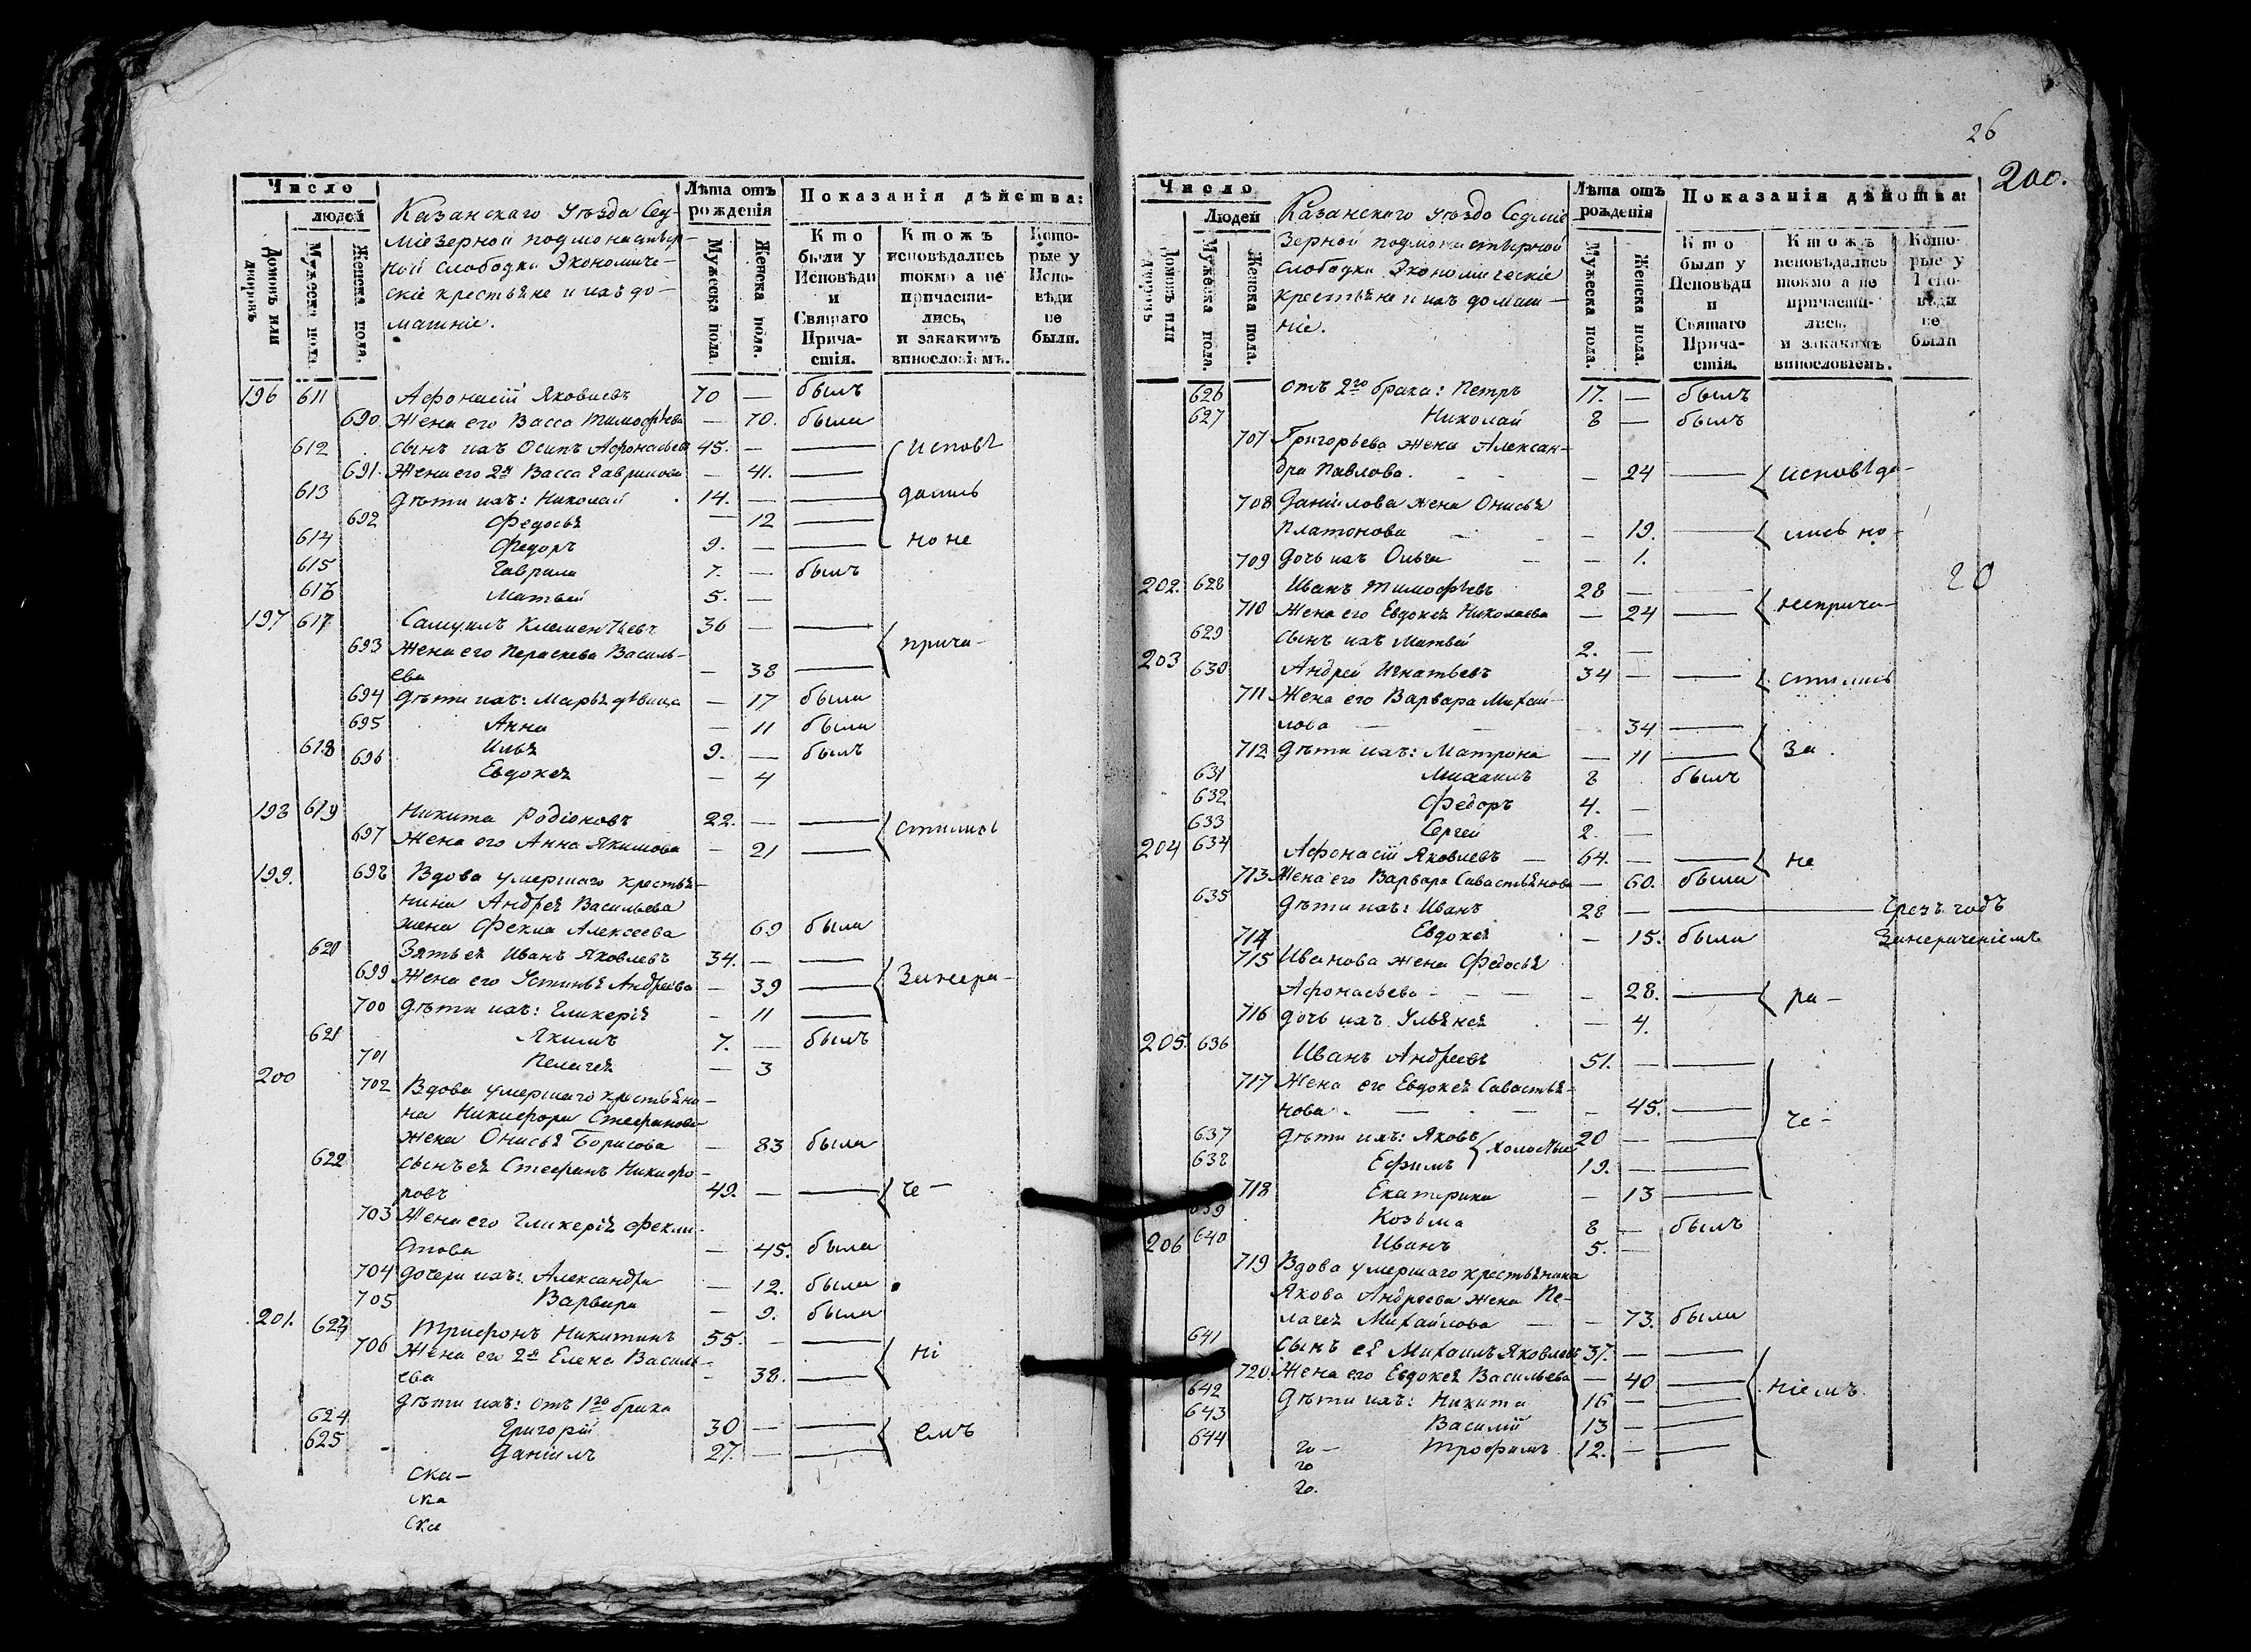 Число
людей
Домовъ или дворовъ
Мужеска пола.
Женска пола.
Казанскаго уѣзда Сед-
міезерной подмонастыр-
ной слободки Экономиче-
скіе крестьяне и ихъ до-
машніе.
Лѣта отъ рожденія
Мужеска пола.
Женска пола.
Показанія дѣйства:
Кто были у Исповѣди и Святаго Прича-стія.
Ктожъ исповѣдались токмо а не причасти-лись, и закакимъ винословіемъ.
Кото-рые у Испо-вѣди не были.
196 611 Афонасій Яковлевъ 70 — былъ
690. Жена его Васса Тимофѣева — 70. была
612 сынъ ихъ Осипъ Афонасьевъ 45. — — исповѣ
691. Жена его 2я Васса Гаврилова — 41. —
613 дѣти ихъ: Николай 14. — — дались
692 Федосья — 12 —
614 Федоръ 9. — — но не
615 Гаврила 7. — былъ
616 Матвей 5. —
197 617 Самуилъ Клементьевъ 36 — —
693 Жена его Параскева Василь- прича-
ева — 38 —
694 дѣти ихъ: Марья дѣвица — 17 была
695 Анна — 11 была
618 Илья 9. — былъ
696 Евдокея — 4
198 619 Никита Родіоновъ 22. — — стились
697 Жена его Анна Якимова — 21 —
199. 698 Вдова умершаго крестья-
нина Андрея Васильева
жена Фекла Алексеева 69 была
620 Зять ея Иванъ Яковлевъ 34. — —
699 Жена его Устинья Андреева — 39 — Занера-
700 дѣти ихъ: Гликерія — 11 —
621 Якимъ 7. — былъ
701 Пелагея — 3
200 702 Вдова умершаго крестьяни-
на Никифора Стефанова
жена Онисья Борисова — 83 была
622 сынъ ея Стефанъ Никифо-
ровъ 49. — — че-
703 Жена его Гликерія Фекли-
стова — 45. была
704 дочери ихъ: Александра — 12. была
705 Варвара — 9. была
201. 623 Трифонъ Никитинъ 55. — —
706 Жена его 2я Елена Василь- ні
ева — 38. —
дѣти ихъ: отъ 1го брака
624 Григорій 30 — — емъ
625 Даніилъ 27. — —
ска-
ска
ска
26
200.
Число
Людей
Домовъ или дворовъ
Мужеска пола.
Женска пола.
Казанскаго уѣзда Седміе
зерной подмонастырной
слободки Экономическіе
крестьяне и ихъ домаш-
ніе.
Лѣта отъ рожденія
Мужеска пола.
Женска пола.
Показанія дѣйства:
Кто были у Исповѣди и Святаго Прича-стія.
Ктожъ исповѣдались токмо а не причасти-лись, и закакимъ винословіемъ.
Кото-рые у Испо-вѣди не были
626 отъ 2го брака: Петръ 17. — былъ
627 Николай 8 — былъ
707 Григорьева жена Алексан-
дра Павлова. — 24 — исповѣда-
708 Даніилова жена Онисья
Платонова — 19. — лись но-
709 дочь ихъ Ольга — 1.
20
202. 628 Иванъ Тимофѣевъ 28 — —
710 Жена его Евдокея Николаева — 24 — неприча-
629 сынъ ихъ Матвей 2. —
203 630 Андрей Игнатьевъ 34 — — стились
711 Жена его Варвара Михай-
лова — 34 —
712 дѣти ихъ: Матрона — 11 — за
631 Михаилъ 8 былъ
632 Федоръ 4. —
633 Сергей 2. —
204 634 Афонасій Яковлевъ — 64. — — не
713 Жена его Варвара Савастьянова — 60. была
635 дѣти ихъ: Иванъ 28 — — Чрезъ годъ
714 Евдокея — 15. была Занераченіемъ
715 Иванова жена Федосья
Афонасьева — 28. — ра-
716 дочь ихъ Ульянея — 4.
205. 636 Иванъ Андреевъ 51. — —
717 Жена его Евдокея Савастья-
нова — 45. — че-
637 дѣти ихъ: Яковъ 20 — —
холостые
638 Ефимъ 19. — —
718 Екатерина — 13 —
639 Козьма 8 — былъ
206 640 Иванъ 5. —
719 Вдова умершаго крестьянина
Якова Андреева жена Пе-
лагея Михайлова — — 73. была
641 Сынъ ея Михаилъ Яковлевъ 37. — —
720 Жена его Евдокея Васильева — 40 — ніемъ
642 Дѣти ихъ: Никита 16 — —
643 Василій 13 — —
644 го- Трофимъ 12. — —
го
го.